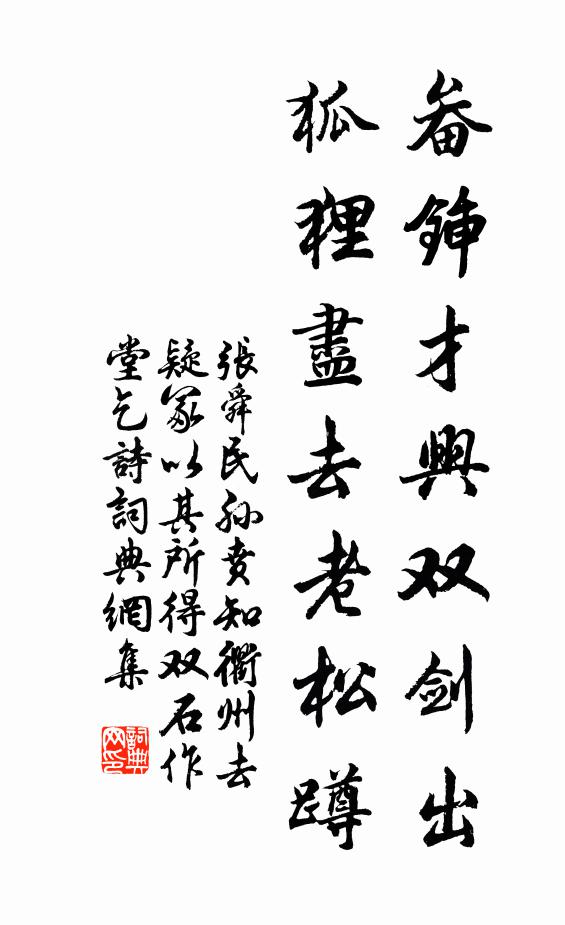 畚鍤才興双剑出
狐狸盡去老松蹲
張舜民孙賁知衢州去
疑冢以其所得双石作
堂乞詩詞典網集
詞典网印